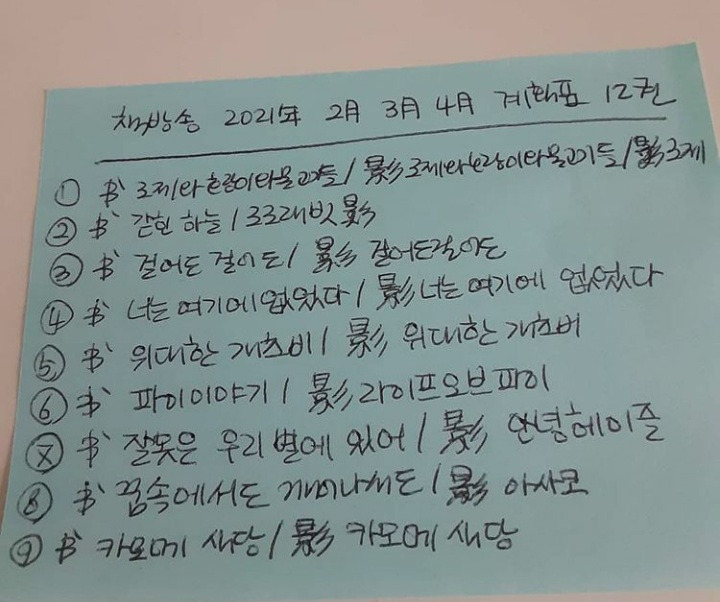 책방송 2021年 2月 3月 4月 계획표 12권
① 书 조제와호랑이와물고기들 / 影 조제와호랑이와물고기들 / 影 조제
② 书 갇힌 하늘 / 조조래빗 影
③ 书 걸어도 걸어도 / 影 걸어도걸어도
④ 书 너는 여기에 없었다 / 影 너는 여기에 없었다
⑤ 书 위대한 개츠비 / 影 위대한 개츠비
⑥ 书 파이이야기 / 影 라이프오브파이
⑦ 书 잘못은 우리 별에 있어 / 影 안녕헤이즐
⑧ 书 꿈속에서도 깨어나서도 / 影 아사코
⑨ 书 카모메 식당 / 影 카모메 식당